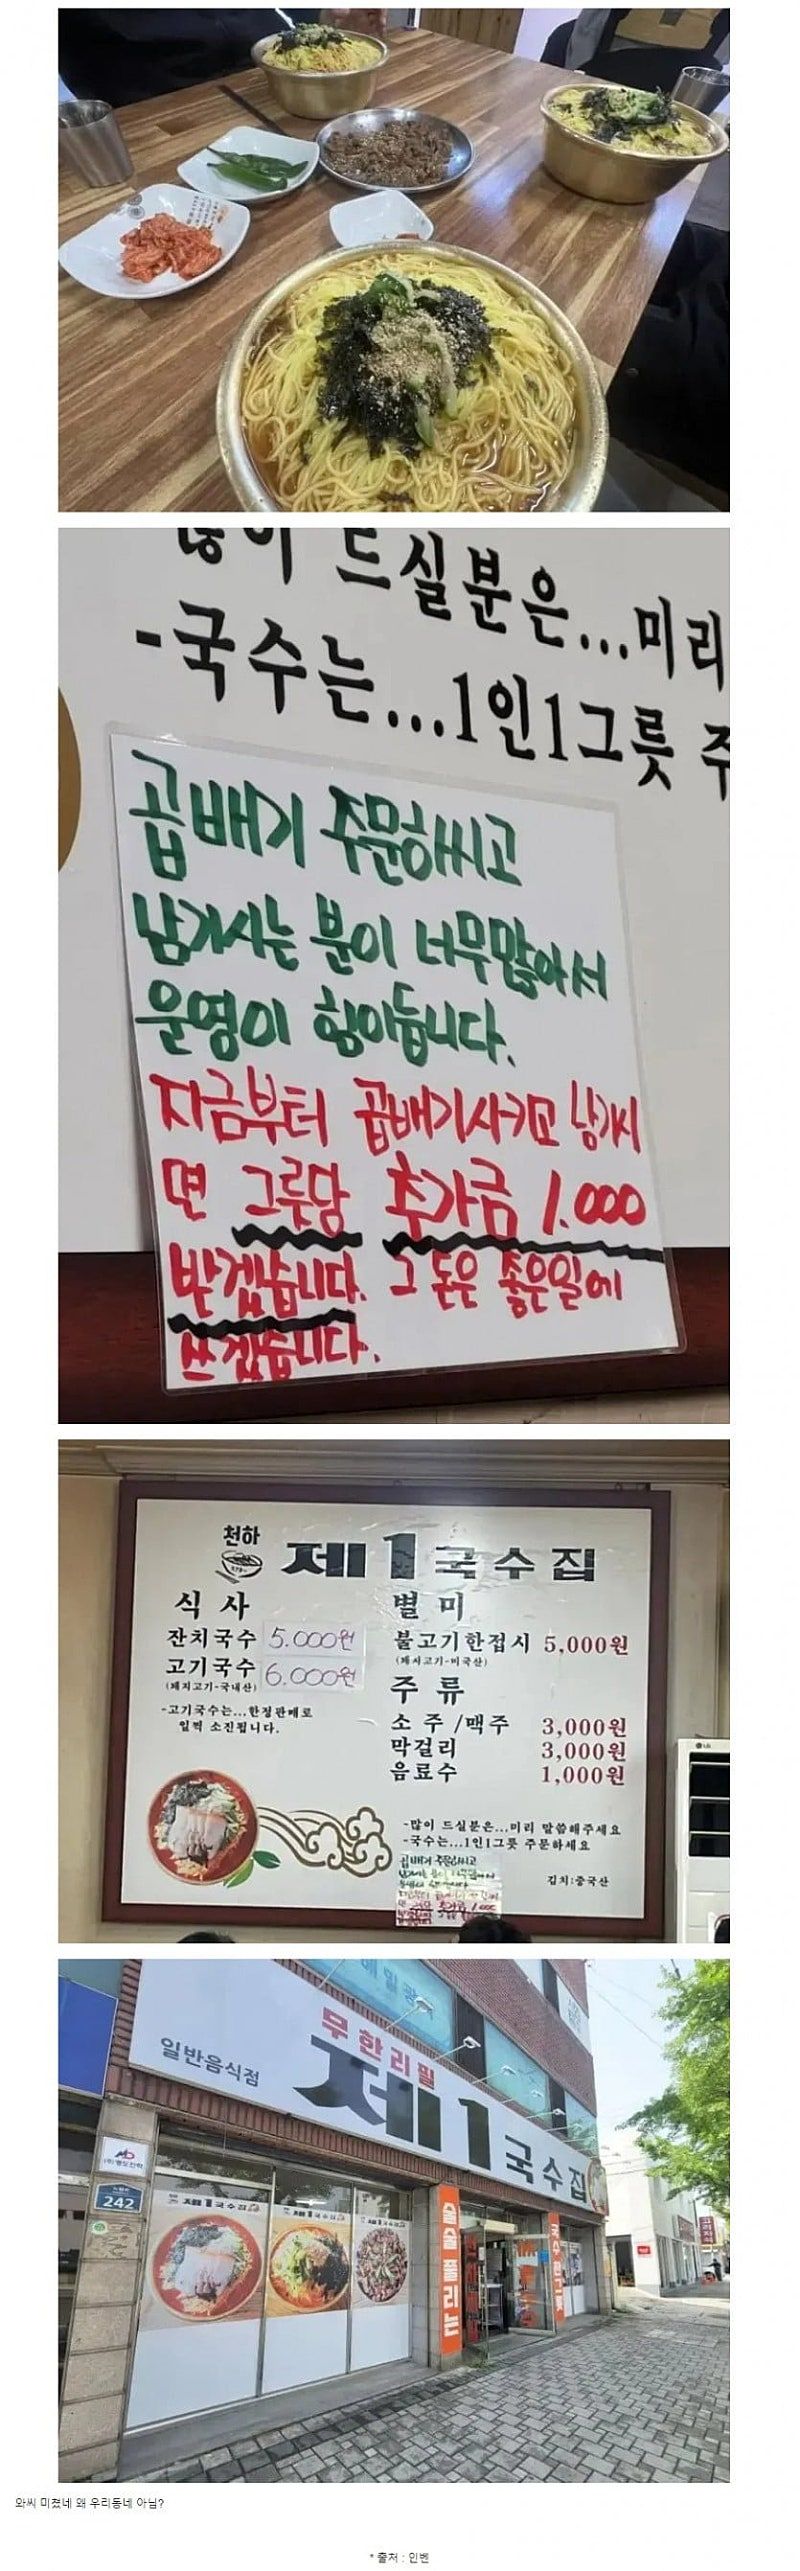 많이 드실분은...미리
-국수는...1인1그릇 주
곱배기 주문하씨고
남기시는 분이 너무많아서
운영이 힘이듭니다.
지금부터 곱배기시키고 남기시
면 그릇당 추가금 1.000
받겠습니다. 그 돈은 좋은일에
쓰겠습니다.
천하
제1국수집
식 사
잔치국수 5.000원
고기국수 6.000원
(돼지고기-국내산)
-고기국수는...한정판매로
일찍 소진됩니다.
별 미
불고기한접시 5,000원
(돼지고기-미국산)
주 류
소 주 /맥주 3,000원
막걸리 3,000원
음료수 1,000원
-많이 드실분은...미리 말씀해주세요
-국수는...1인1그릇 주문하세요
곱배기 주문하씨고
김치:중국산
LG
일반음식점
무한리필
제1국수집
242
제1국수집
제1국수집
제1국수집
술술 풀리는
와씨 미쳤네 왜 우리동네 아님?
* 출처 : 인벤